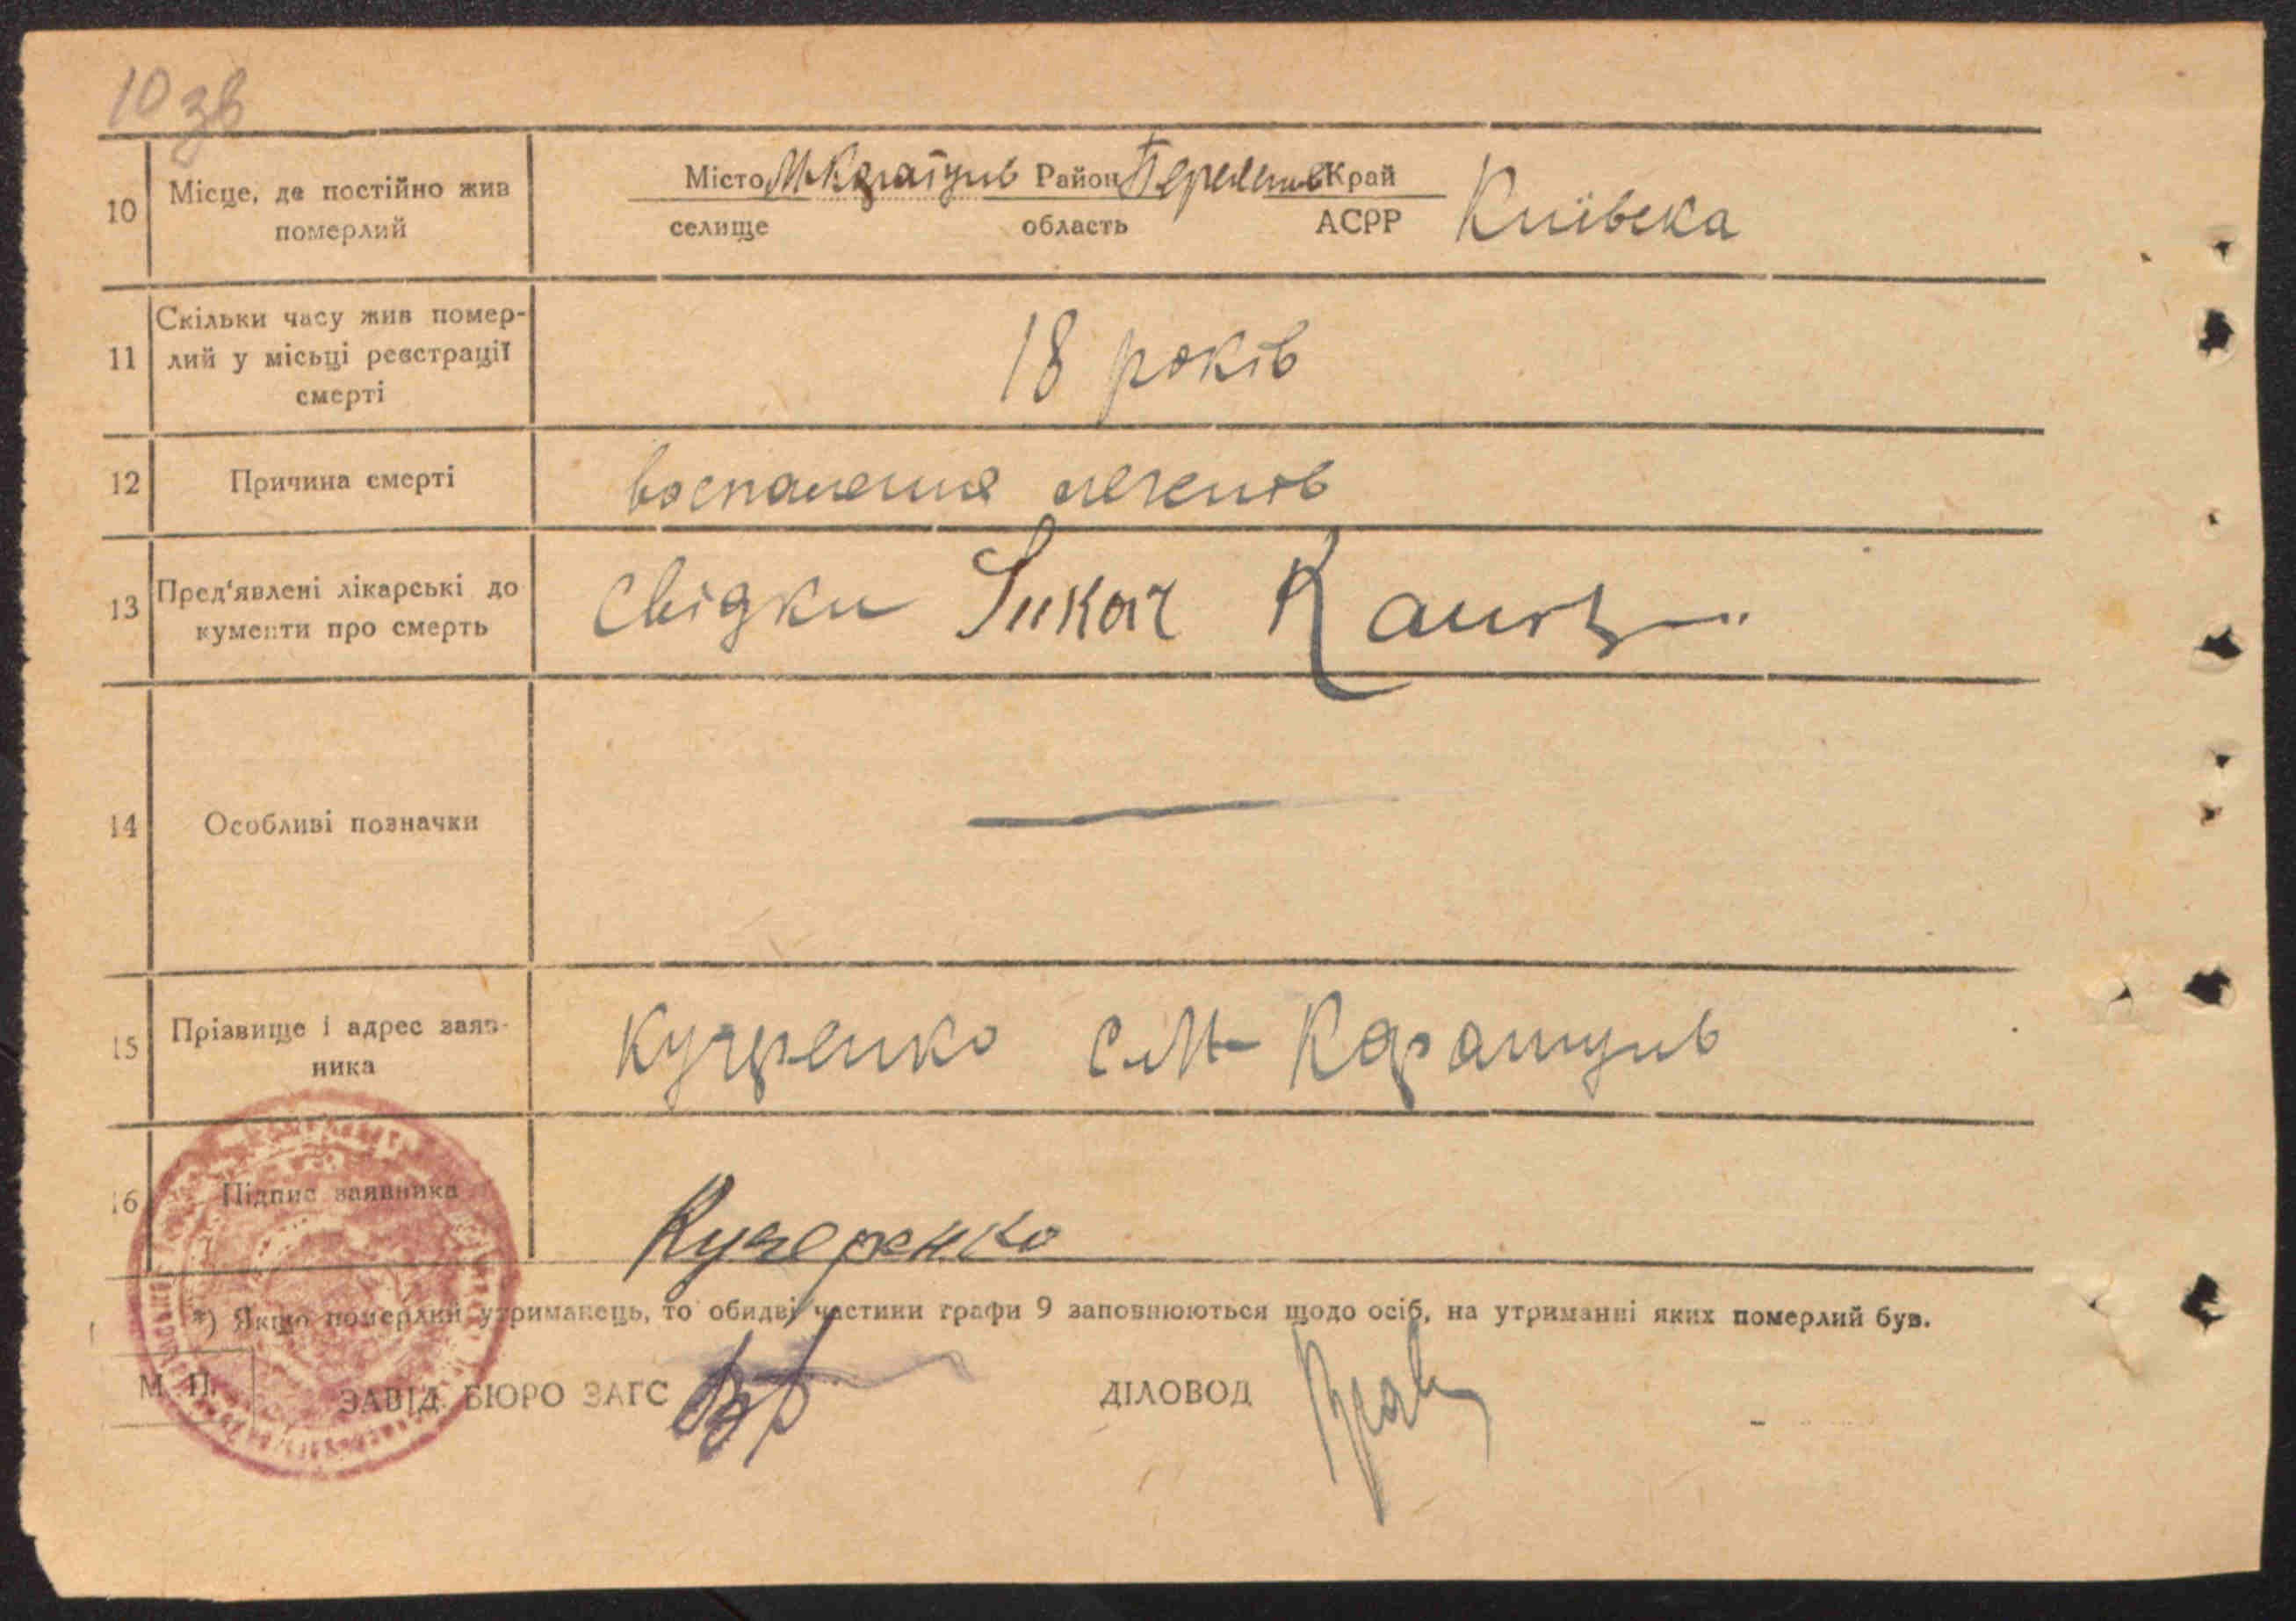 10 зв
10 Місце, де постійно жив померлий
Місто М-Каратуль Район Переяслав Край
селище область АСРР Київська
11 Скільки часу жив помер-
лий у місьці реєстрації
смерті
18 років
12 Причина смерті
воспаление
13 Пред'явлені лікарські до
кументи про смерть
свідки Сикач
14 Особливі позначки
—
15 Прізвище і адрес заяв-
ника
Кучеренко с. М-Каратуль
16 Підпис заявника
Кучеренко
*) Якщо померлий утриманець, то обидві частини графи 9 заповнюються щодо осіб, на утриманні яких померлий був.
М. П.
ЗАВІД. БЮРО ЗАГС
ДІЛОВОД